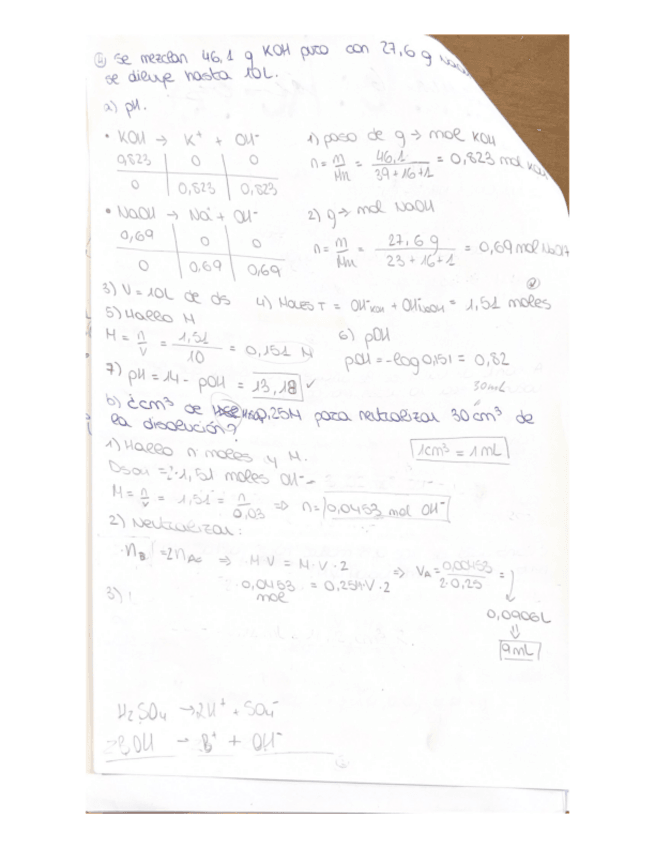 Se mezclan 46,1 g KOH puro con 27,6 g
se diluye hasta 10L.
a) pH.
• KOH → K⁺ + OH⁻
0,823 0 0
0 0,823 0,823
1) paso de g → mol KOH
n = m/Mn = 46,1/39+16+1 = 0,823 mol KOH
• NaOH → Na⁺ + OH⁻
0,69 0 0
0 0,69 0,69
2) g → mol NaOH
n = m/Mn = 27,6 g/23+16+1 = 0,69 mol NaOH
3) V = 10L de ds 4) Moles T = OH⁻KOH + OH⁻NaOH = 1,51 moles
5) Hallo M
M = n/V = 1,51/10 = 0,151 M
6) pOH
pOH = -log 0,151 = 0,82
7) pH = 14 - pOH = 13,18 ✓
30mL
b) ¿cm³ de 0,25M para neutralizar 30 cm³ de
la disolución?
1) Hallo nº moles y M.
1,51 moles OH⁻
1cm³ = 1mL
M = n/V = 1,51 = n/0,03 ⇒ n = 0,0453 mol OH⁻
2) Neutralizar:
nB = 2nAc ⇒ M·V = M·V·2
0,0453 mol = 0,25M·V·2
⇒ VA = 0,00453/2·0,25 =
0,0906L
⇓
9mL
3)
H₂SO₄ → 2H⁺ + SO₄⁻
2BOH → B⁺ + OH⁻